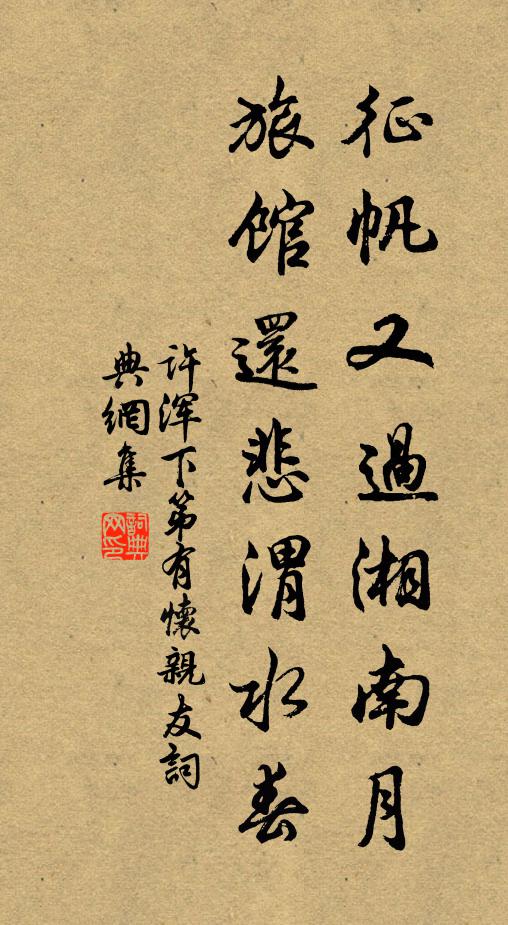 征帆又過湘南月
旅館還悲渭水春
許渾下第有懷親友詞
典網集
詞典網印